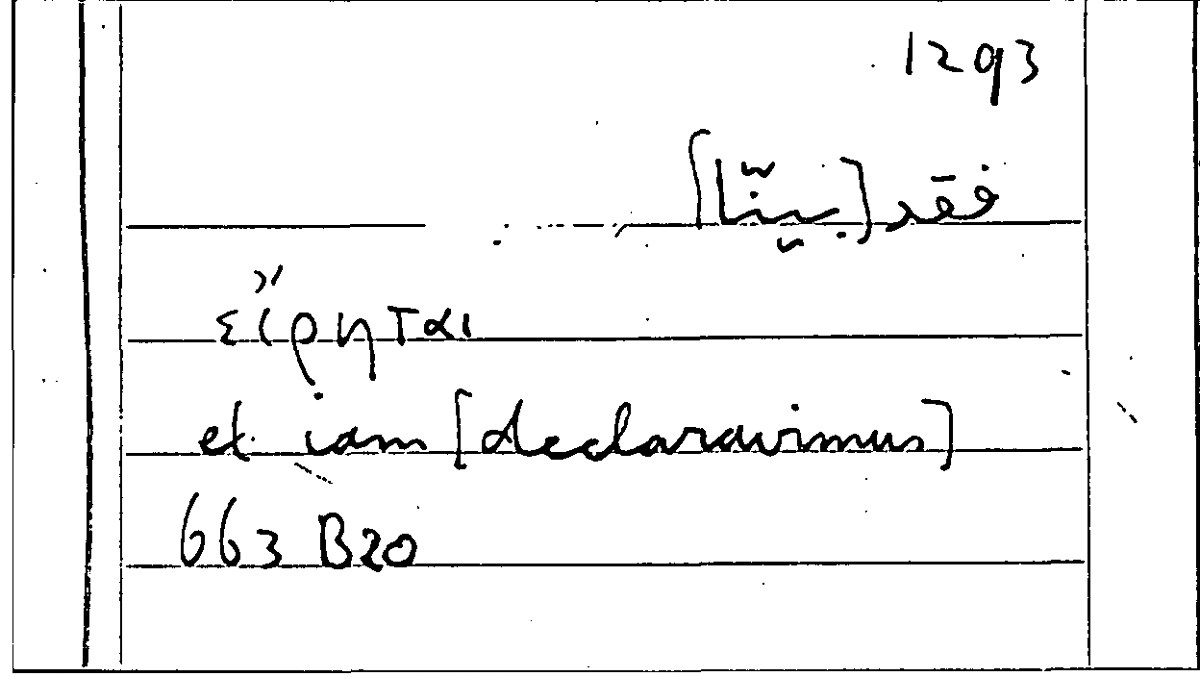 1293
فقد [بيّنّا]
εἴρηται
et iam [declaravimus]
663 B20